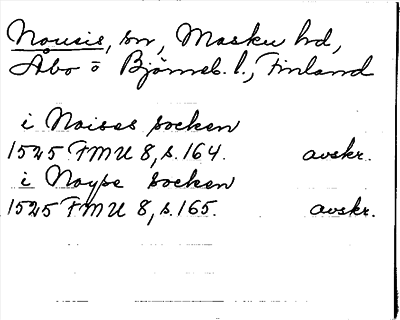 Nousis, sn, Masku hd,
Åbo o Björneb. l., Finland
i Noises socken
1525 FMU 8, s. 164. avskr.
i Noype socken
1525 FMU 8, s. 165. avskr.